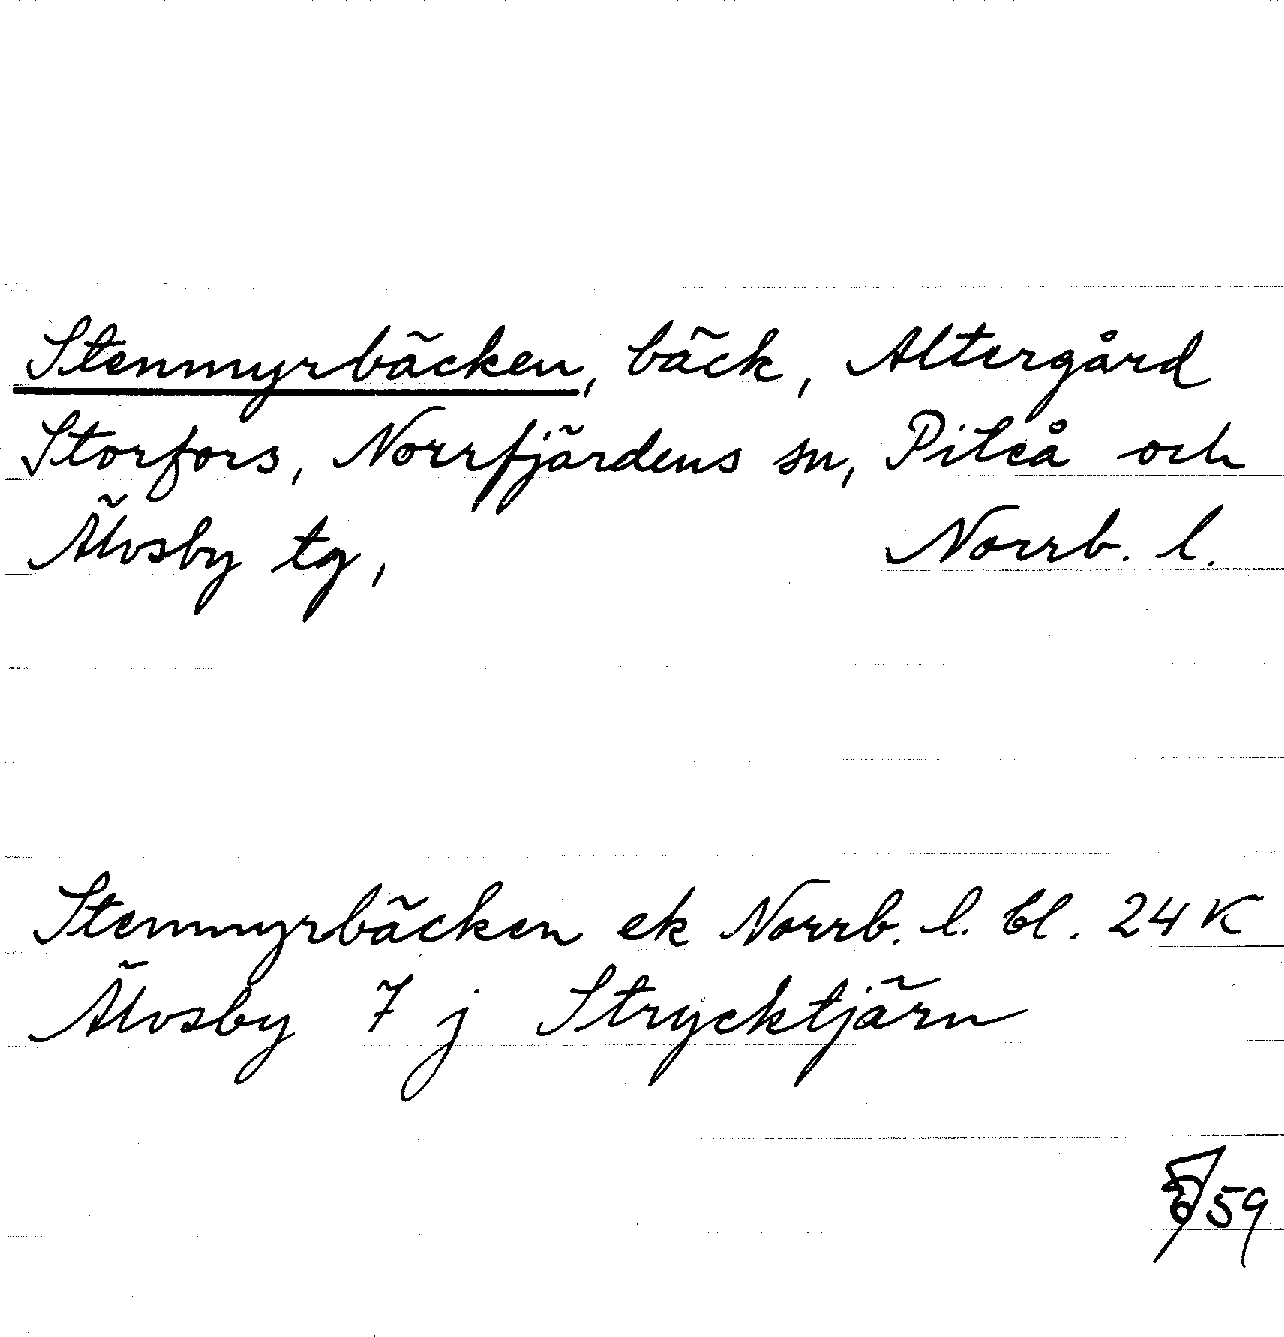 Stenmyrbäcken, bäck, Altergård
Storfors, Norrfjärdens sn, Piteå och
Älvsby tg, Norrb. l.
Stenmyrbäcken ek Norrb. l. bl. 24 K
Älvsby 7 j Strycktjärn
59